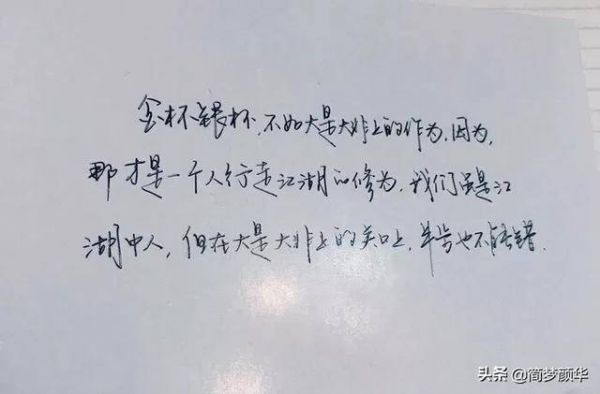 金杯银杯,不如大是大非上的作为,因为,
那才是一个人行走江湖的修为,我们虽是江
湖中人,但在大是大非上的关口上,半步也不能错.
头条 @简梦颜华